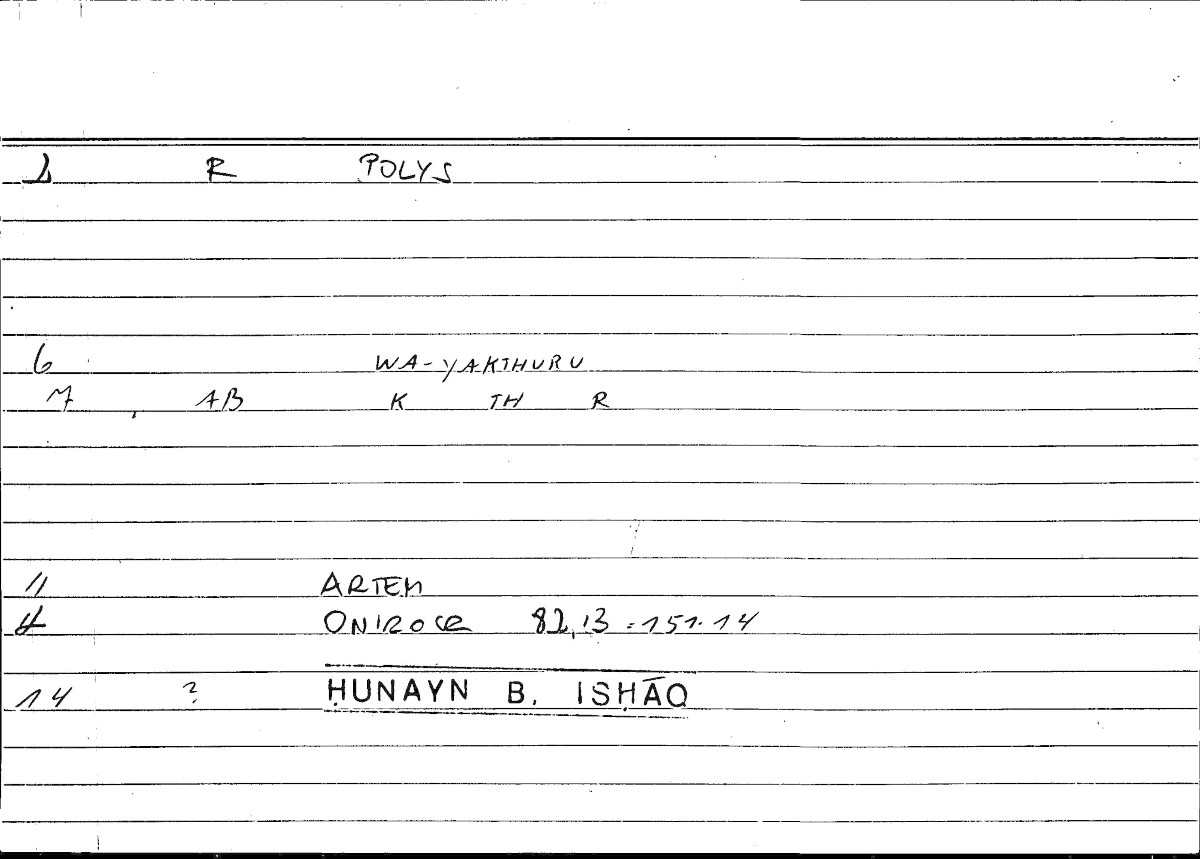 1 R POLYS
6 WA-YAKTHURU
7 , AB K TH R
11 ARTEM
4 ONIROCR 82,13 = 151.14
14 ? ḤUNAYN B. ISḤĀQ